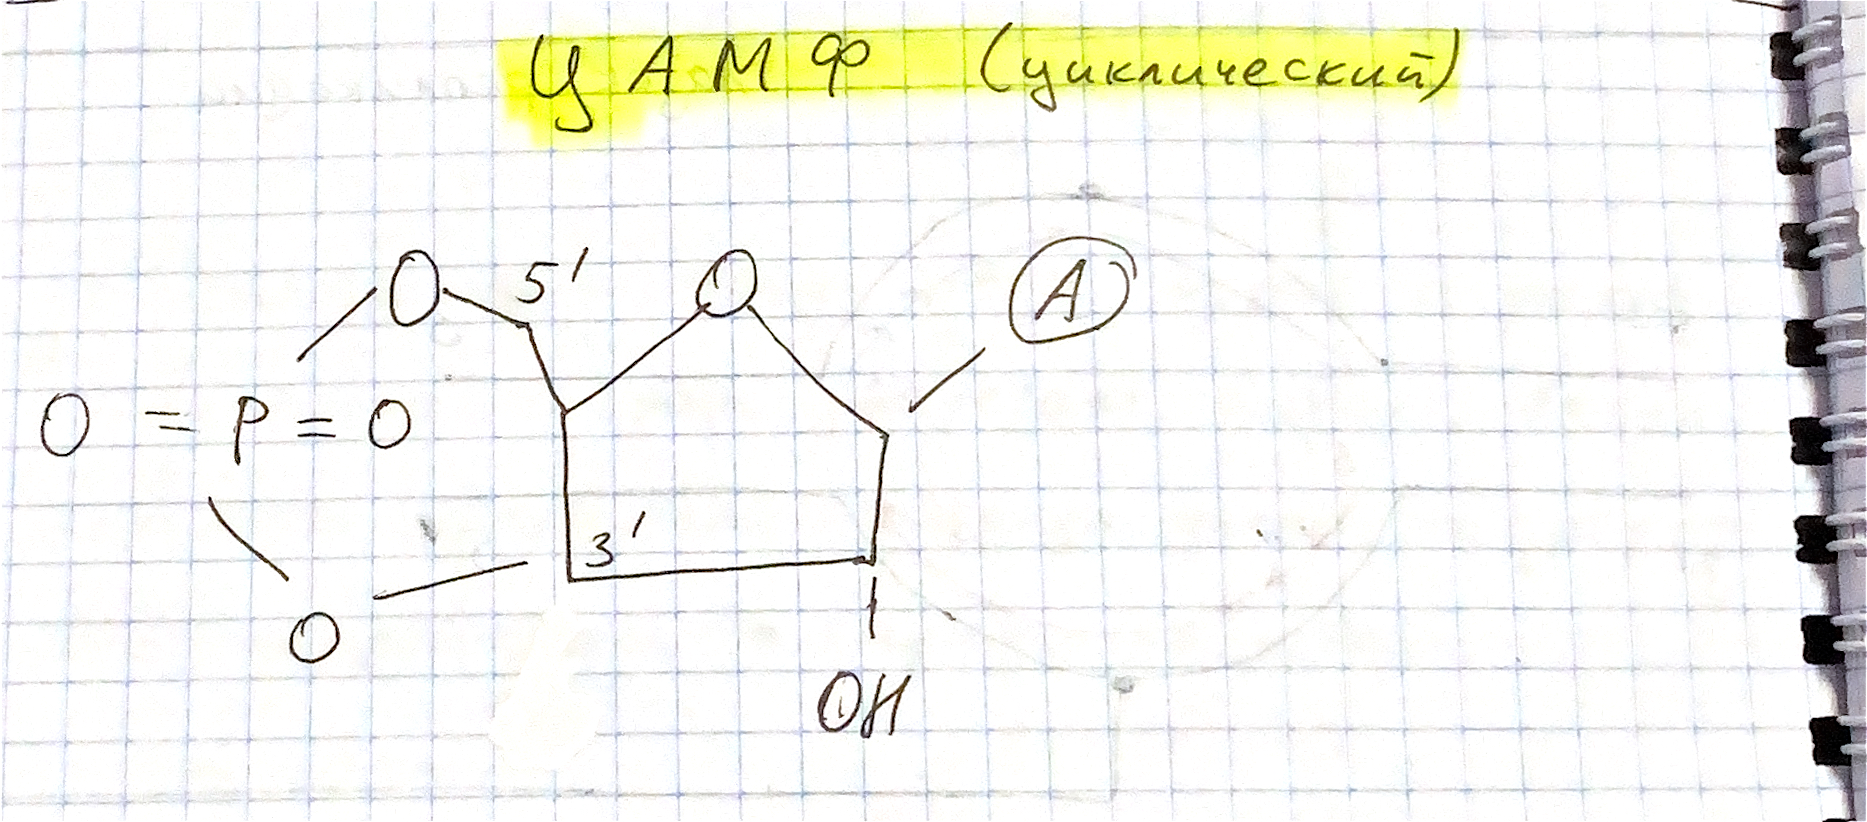 ЦАМФ (циклический)
O 5' O A
O = P = O
3'
O
OH